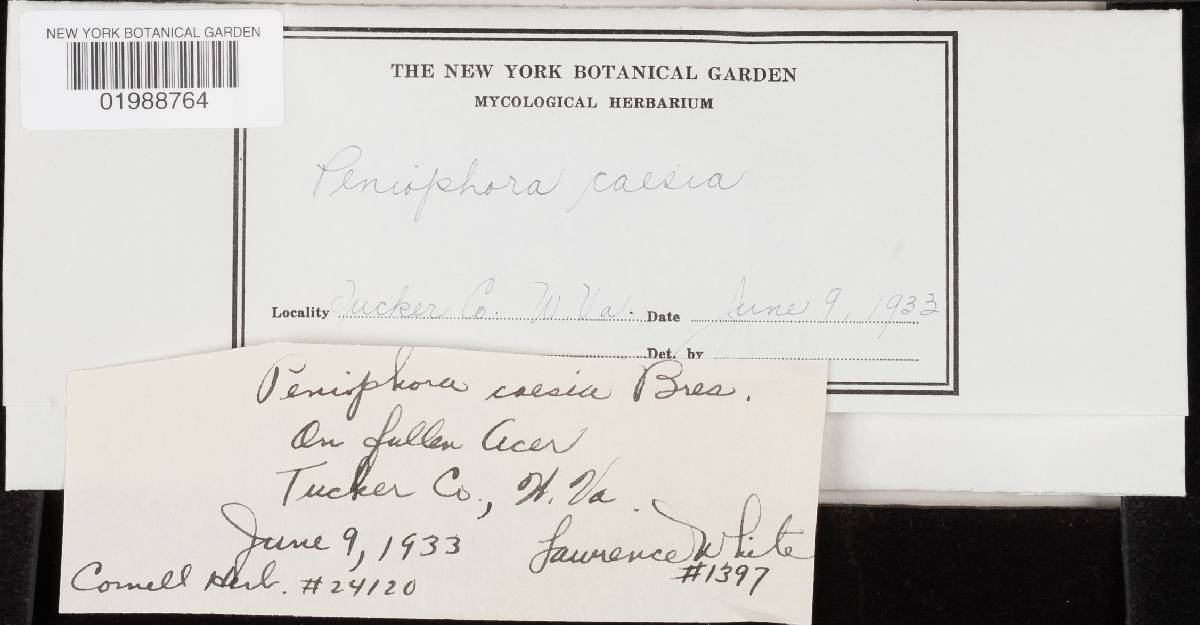 NEW YORK BOTANICAL GARDEN
01988764
THE NEW YORK BOTANICAL GARDEN
MYCOLOGICAL HERBARIUM
Peniophora caesia
Locality Tucker Co. W. Va. Date June 9, 1933
Det. by
Peniophora caesia Bres.
On fallen Acer
Tucker Co., W. Va.
June 9, 1933 Lawrence White
Cornell Herb. #24120 #1397